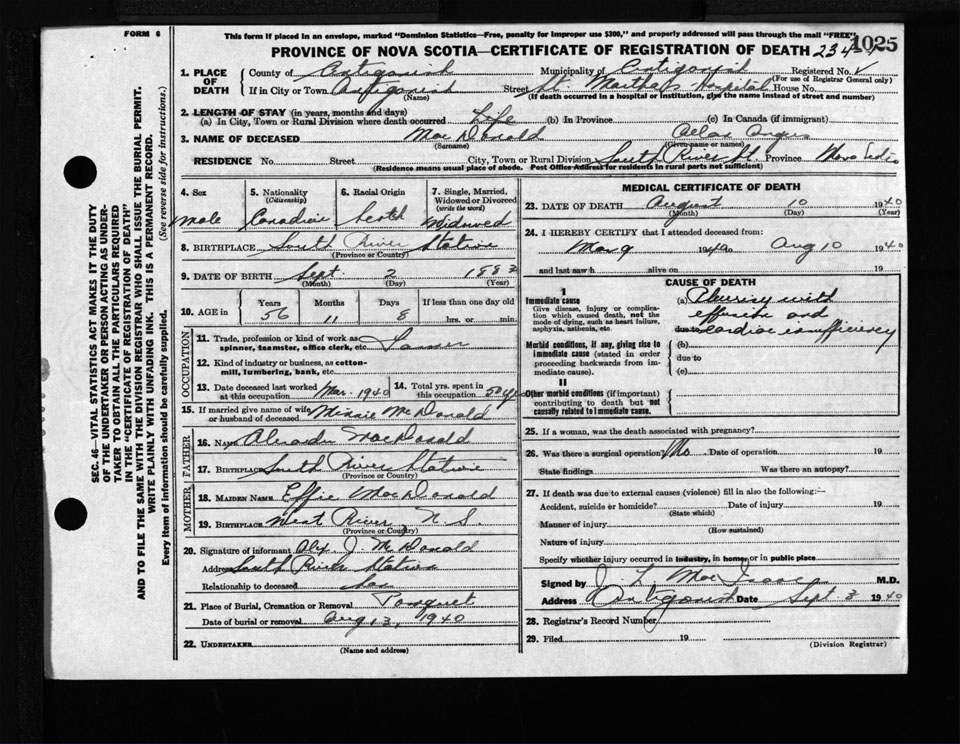 FORM 6
This form if placed in an envelope, marked "Dominion Statistics—Free, penalty for improper use $300," and properly addressed will pass through the mail "FREE"
1025
PROVINCE OF NOVA SCOTIA—CERTIFICATE OF REGISTRATION OF DEATH
1. PLACE OF DEATH
County of Antigonish Municipality of Antigonish Registered No.
(For use of Registrar General only)
If in City or Town Antigonish Street St Martha's Hospital House No.
(Name) (If death occurred in a hospital or institution, give the name instead of street and number)
2. LENGTH OF STAY (in years, months and days)
(a) In City, Town or Rural Division where death occurred Life (b) In Province (c) In Canada (if immigrant)
3. NAME OF DECEASED MacDonald Angus
(Surname) (Given name or names)
RESIDENCE No. Street City, Town or Rural Division South River St. Province Nova Scotia
(Residence means usual place of abode. Post Office Address for residents in rural parts not sufficient)
4. Sex Male
5. Nationality (Citizenship) Canadian
6. Racial Origin Scotch
7. Single, Married, Widowed or Divorced (write the word) Widowed
8. BIRTHPLACE South River Station
(Province or Country)
9. DATE OF BIRTH Sept 2 1883
(Month) (Day) (Year)
10. AGE in Years Months Days If less than one day old
56 11 8 hrs. or min.
OCCUPATION
11. Trade, profession or kind of work as spinner, teamster, office clerk, etc. Farmer
12. Kind of industry or business, as cotton-mill, lumbering, bank, etc.
13. Date deceased last worked at this occupation Mar. 1940
14. Total yrs. spent in this occupation 50 yrs
15. If married give name of wife or husband of deceased Minnie McDonald
FATHER
16. NAME Alexander MacDonald
17. BIRTHPLACE South River Station
(Province or Country)
MOTHER
18. MAIDEN NAME Effie MacDonald
19. BIRTHPLACE West River N.S.
(Province or Country)
20. Signature of informant Alex J. McDonald
Address South River Station
Relationship to deceased Son
21. Place of Burial, Cremation or Removal Pomquet
Date of burial or removal Aug 13, 1940
22. UNDERTAKER
(Name and address)
MEDICAL CERTIFICATE OF DEATH
23. DATE OF DEATH August 10 1940
(Month) (Day) (Year)
24. I HEREBY CERTIFY that I attended deceased from:
May 9 1940 to Aug 10 1940
and last saw h alive on 19
CAUSE OF DEATH
I
Immediate cause
Give disease, injury or complication which caused death, not the mode of dying, such as heart failure, asphyxia, asthenia, etc.
(a) Pleurisy with
effusion and
due to cardiac insufficiency
Morbid conditions, if any, giving rise to immediate cause (stated in order proceeding backwards from immediate cause).
(b)
due to
(c)
II
Other morbid conditions (if important) contributing to death but not causally related to immediate cause.
25. If a woman, was the death associated with pregnancy?
26. Was there a surgical operation? No Date of operation 19
State findings Was there an autopsy?
27. If death was due to external causes (violence) fill in also the following:—
Accident, suicide or homicide? Date of injury 19
(State which)
Manner of injury
(How sustained)
Nature of injury
Specify whether injury occurred in industry, in home, or in public place
Signed by J. L. MacIsaac M.D.
Address Antigonish Date Sept 3 1940
28. Registrar's Record Number
29. Filed 19
(Division Registrar)
SEC. 46—VITAL STATISTICS ACT MAKES IT THE DUTY
OF THE UNDERTAKER OR PERSON ACTING AS UNDER-
TAKER TO OBTAIN ALL THE PARTICULARS REQUIRED
IN THE "CERTIFICATE OF REGISTRATION OF DEATH"
AND TO FILE THE SAME WITH THE DIVISION REGISTRAR WHO SHALL ISSUE THE BURIAL PERMIT.
WRITE PLAINLY WITH UNFADING INK. THIS IS A PERMANENT RECORD.
Every item of information should be carefully supplied. (See reverse side for instructions.)